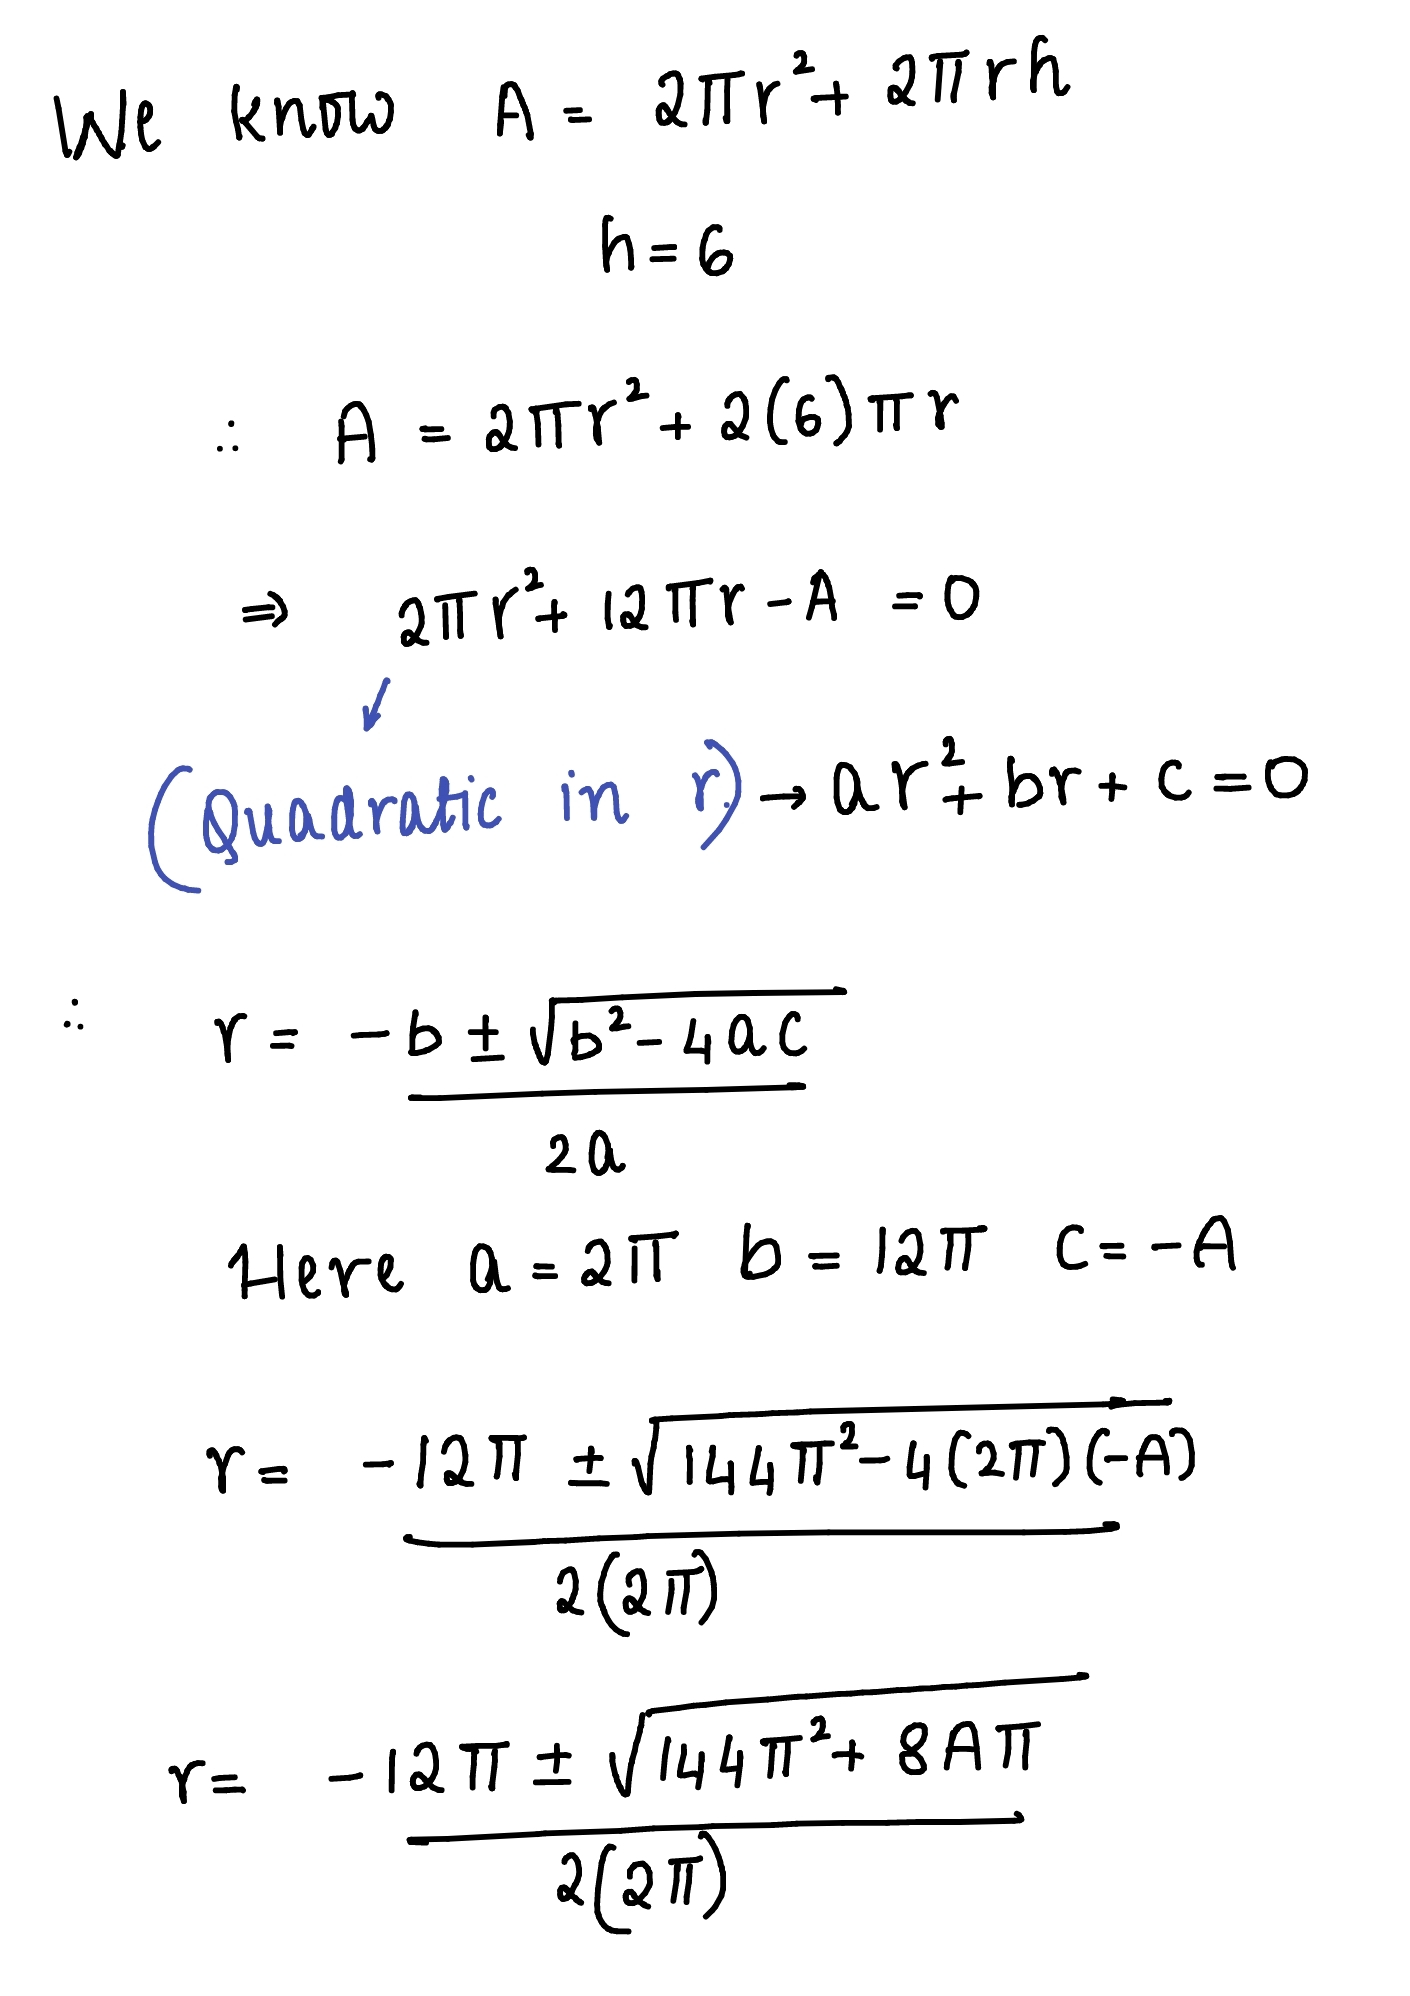 We know A = 2πr² + 2πrh
h = 6
∴ A = 2πr² + 2(6)πr
⇒ 2πr² + 12πr - A = 0
(Quadratic in r.) → ar² + br + c = 0
∴ r = -b ± √(b² - 4ac) / 2a
Here a = 2π b = 12π c = -A
r = -12π ± √(144π² - 4(2π)(-A)) / 2(2π)
r = -12π ± √(144π² + 8Aπ) / 2(2π)